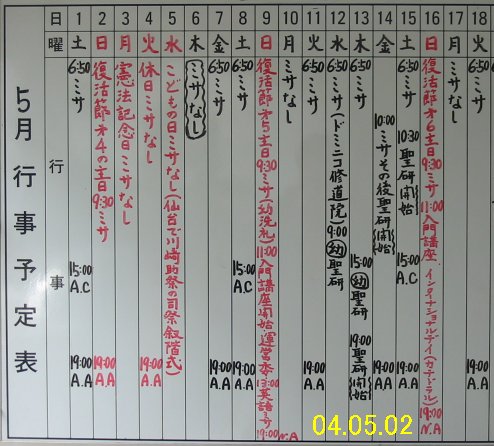 5月行事予定表
日 1 2 3 4 5 6 7 8 9 10 11 12 13 14 15 16 17 18
曜 土 日 月 火 水 木 金 土 日 月 火 水 木 金 土 日 月 火
行事
6:50ミサ 15:00 A.C 19:00 A.A
復活節才4の主日9:30ミサ 19:00 A.A
憲法記念日ミサなし
休日ミサなし 19:00 A.A
こどもの日ミサなし(仙台で川崎助祭の司祭叙階式)
ミサなし
6:50ミサ 19:00 A.A
6:50ミサ 15:00 A.C 19:00 A.A
復活節才5主日9:30ミサ(幼洗礼)11:00入門講座開始・運営 13:00英語ミサ 19:00 N.A
ミサなし
6:50ミサ 19:00 A.A
6:50ミサ(ドミニコ修道院)9:00幼聖研
6:50ミサ 15:00幼聖研 19:00聖研(開始)
6:50 10:00ミサその後聖研(開始) 19:00 A.A
6:50ミサ 10:30聖研(開始) 15:00 A.C 19:00 A.A
復活節才6主日9:30ミサ 11:00入門講座、インタナショナルデイ(カテドラル) 19:00 N.A
ミサなし
6:50ミサ 19:00 A.A
04.05.02